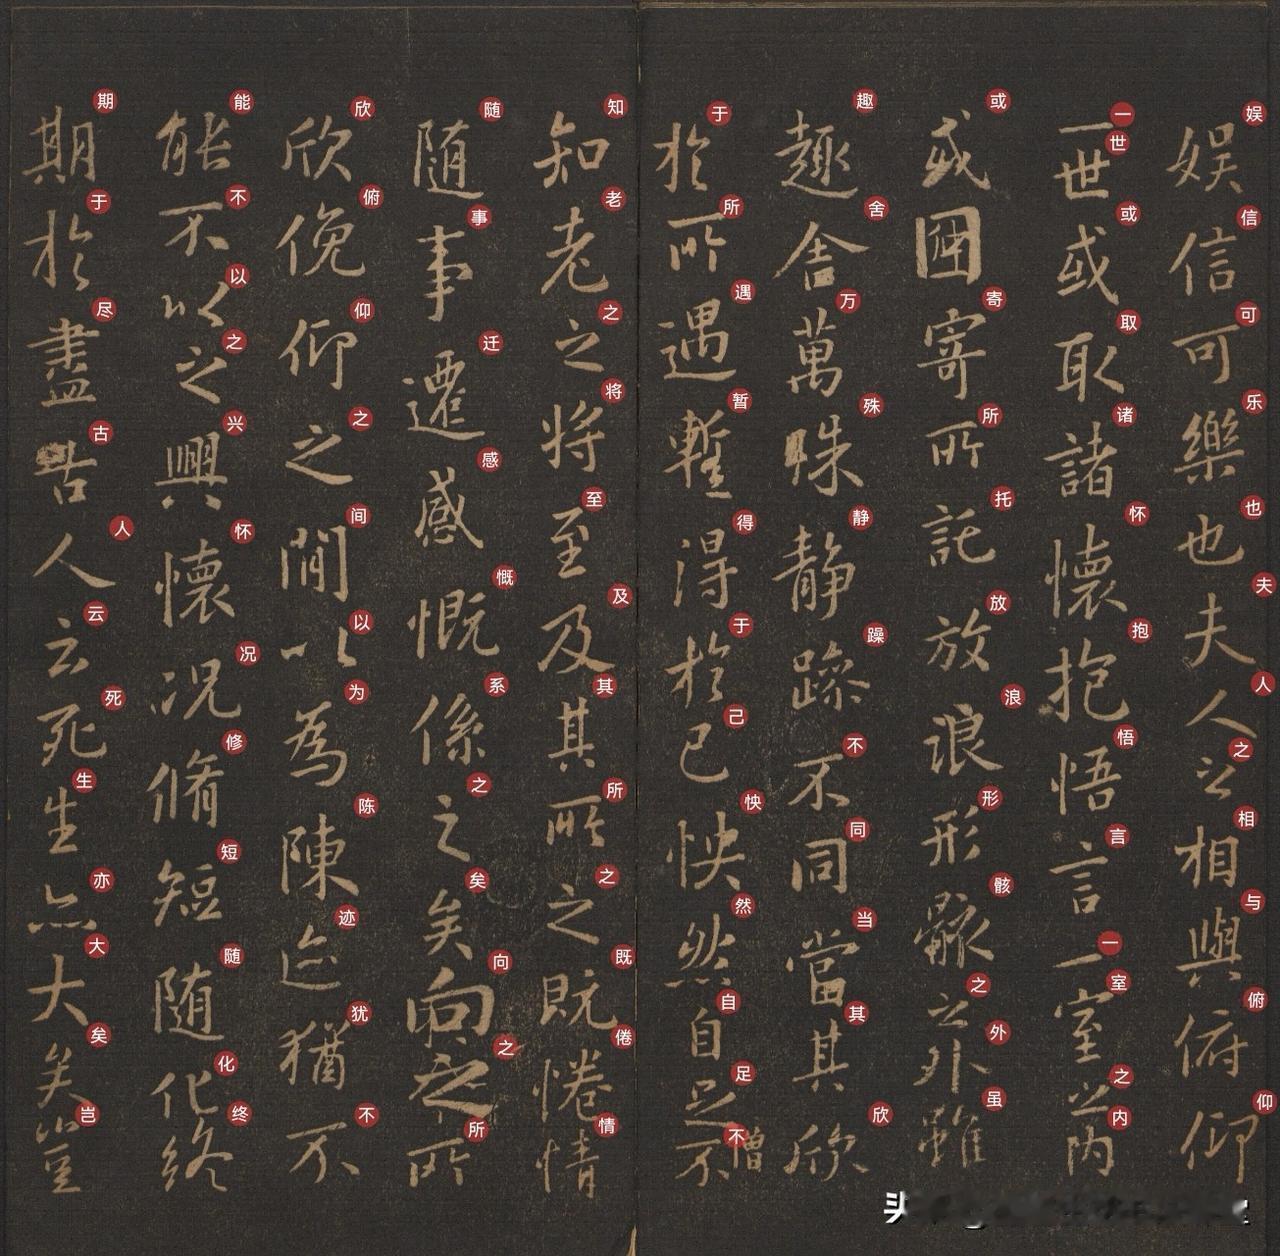 娛信可樂也夫人之相與俯仰
娱信可乐也夫人之相与俯仰
一世或取諸懷抱悟言一室之內
一世或取诸怀抱悟言一室之内
或因寄所託放浪形骸之外雖
或寄所托放浪形骸之外虽
趣舍萬殊静躁不同當其欣
趣舍万殊静躁不同当其欣
於所遇暫得於己怏然自足不
僧
于所遇暂得于己怏然自足不
知老之將至及其所之既惓情
知老之将至及其所之既倦情
隨事遷感慨係之矣向之所
随事迁感慨系之矣向之所
欣俛仰之間以為陳迹猶不
欣俯仰之间以为陈迹犹不
能不以之興懷況脩短隨化終
能不以之兴怀况修短随化终
期於盡古人云死生亦大矣豈
期于尽古人云死生亦大矣岂